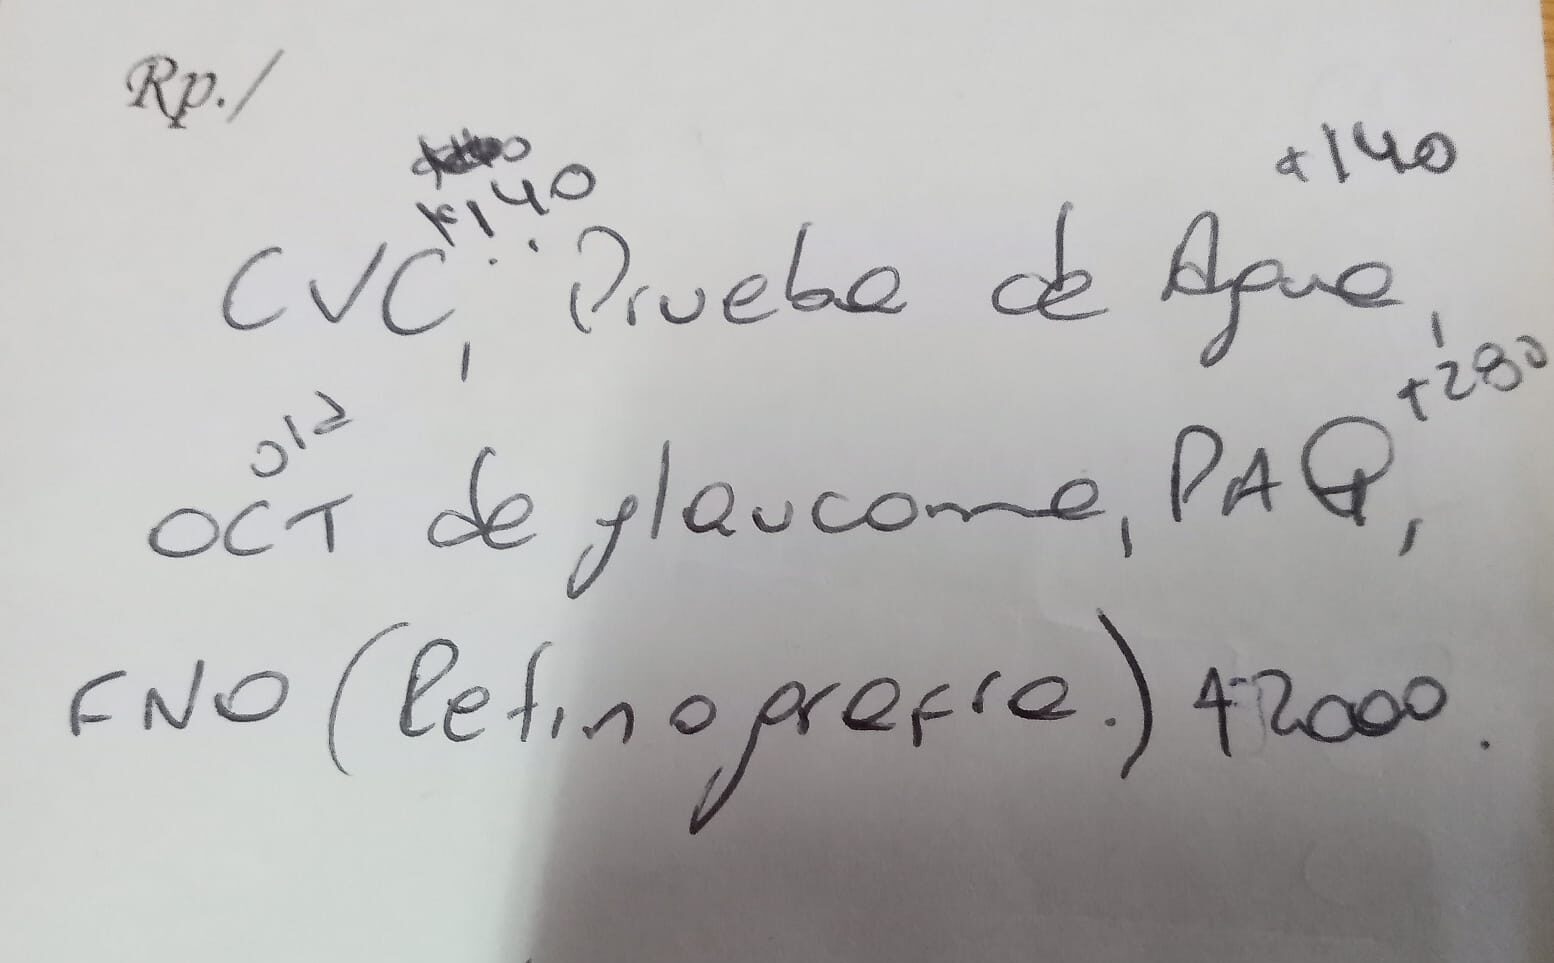 Rp./
+140 +140
CVC, Prueba de Agua,
+280
OCT de glaucoma, PAQ,
FNO (Retinografía.) +2000.